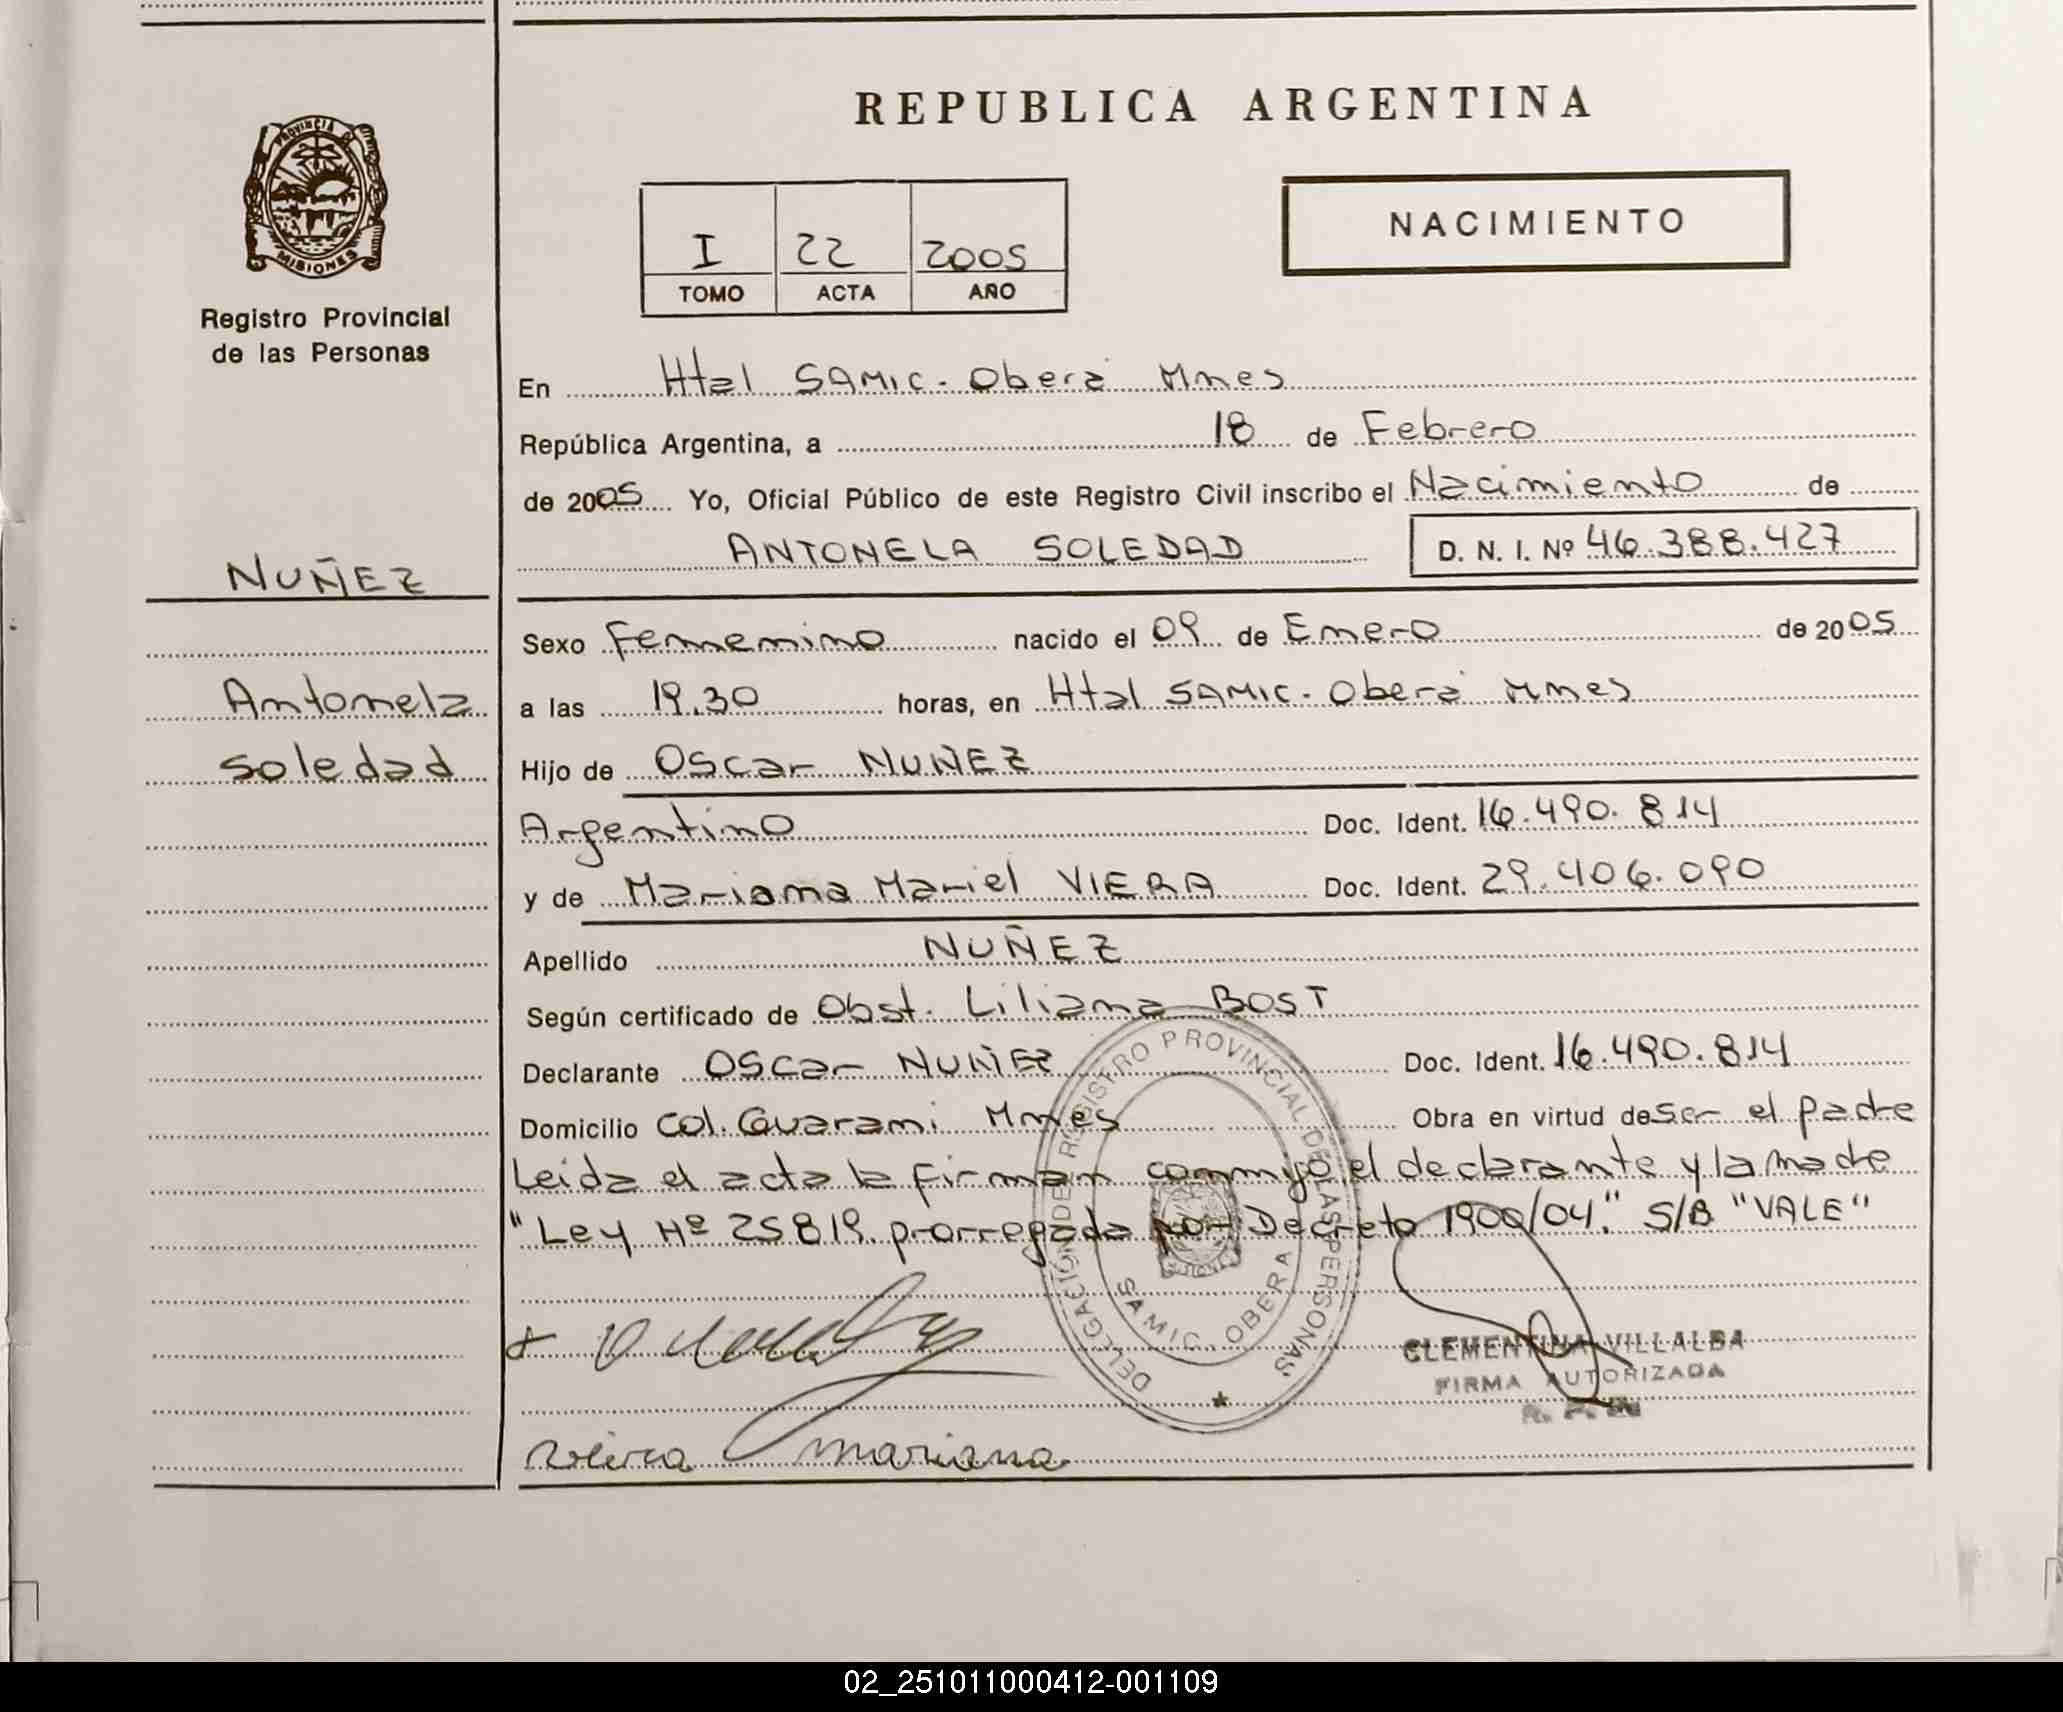 REPUBLICA ARGENTINA
PROVINCIA D
MISIONES
Registro Provincial
de las Personas
I 22 2005
TOMO ACTA AÑO
NACIMIENTO
En Htal SAMIC. Oberá Mnes
República Argentina, a 18 de Febrero
de 2005 Yo, Oficial Público de este Registro Civil inscribo el Nacimiento de
ANTONELA SOLEDAD D. N. I. Nº 46.388.427
NUÑEZ
Antonela
Soledad
Sexo Femenino nacido el 09 de Enero de 2005
a las 19.30 horas, en Htal SAMIC. Oberá Mnes
Hijo de Oscar NUÑEZ
Argentino Doc. Ident. 16.490.814
y de Mariana Mariel VIERA Doc. Ident. 29.406.090
Apellido NUÑEZ
Según certificado de Obst. Liliana BOST
Declarante Oscar NUÑEZ Doc. Ident. 16.490.814
Domicilio Col. Guarani Mnes Obra en virtud de ser el padre
Leida el acta la firman conmigo el declarante y la madre
"Ley Nº 25819. prorregada por Decreto 1900/04." S/B "VALE"
DELEGACIÓN DE REGISTRO PROVINCIAL DE LAS PERSONAS
SAMIC. OBERA
CLEMENTINA VILLALBA
FIRMA AUTORIZADA
viera mariana
02_251011000412-001109